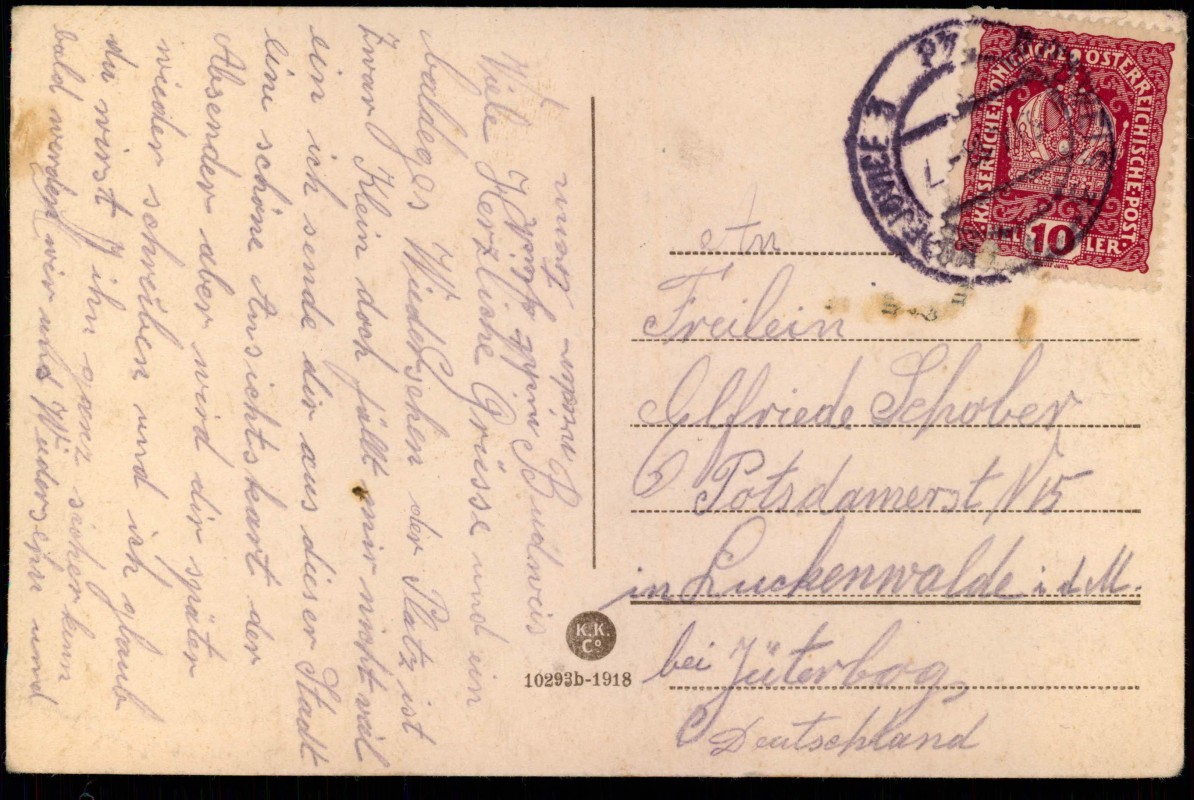 Viele Herzliche Grüsse und ein
baldeges Wiedersehen der Platz ist
zwar Klein doch fällt mir nicht viel
ein ich sende dir aus dieser Stadt
eine schöne Ansichtskart der
Absender aber wird dir später
wieder schreiben und ich glaub
du wirst ihn ganz sicher kenn
bald werden wir uns Wiedersehn und
Budweis
K.K.
Cº
10293b-1918
KAISERLICHE·KÖNIGLICHE·ÖSTERREICHISCHE·POST·
10
An
Freilein
Elfriede Schober
Potsdamerst N 15
in Luckenwalde i.d.M.
bei Jüterbog
Deutschland